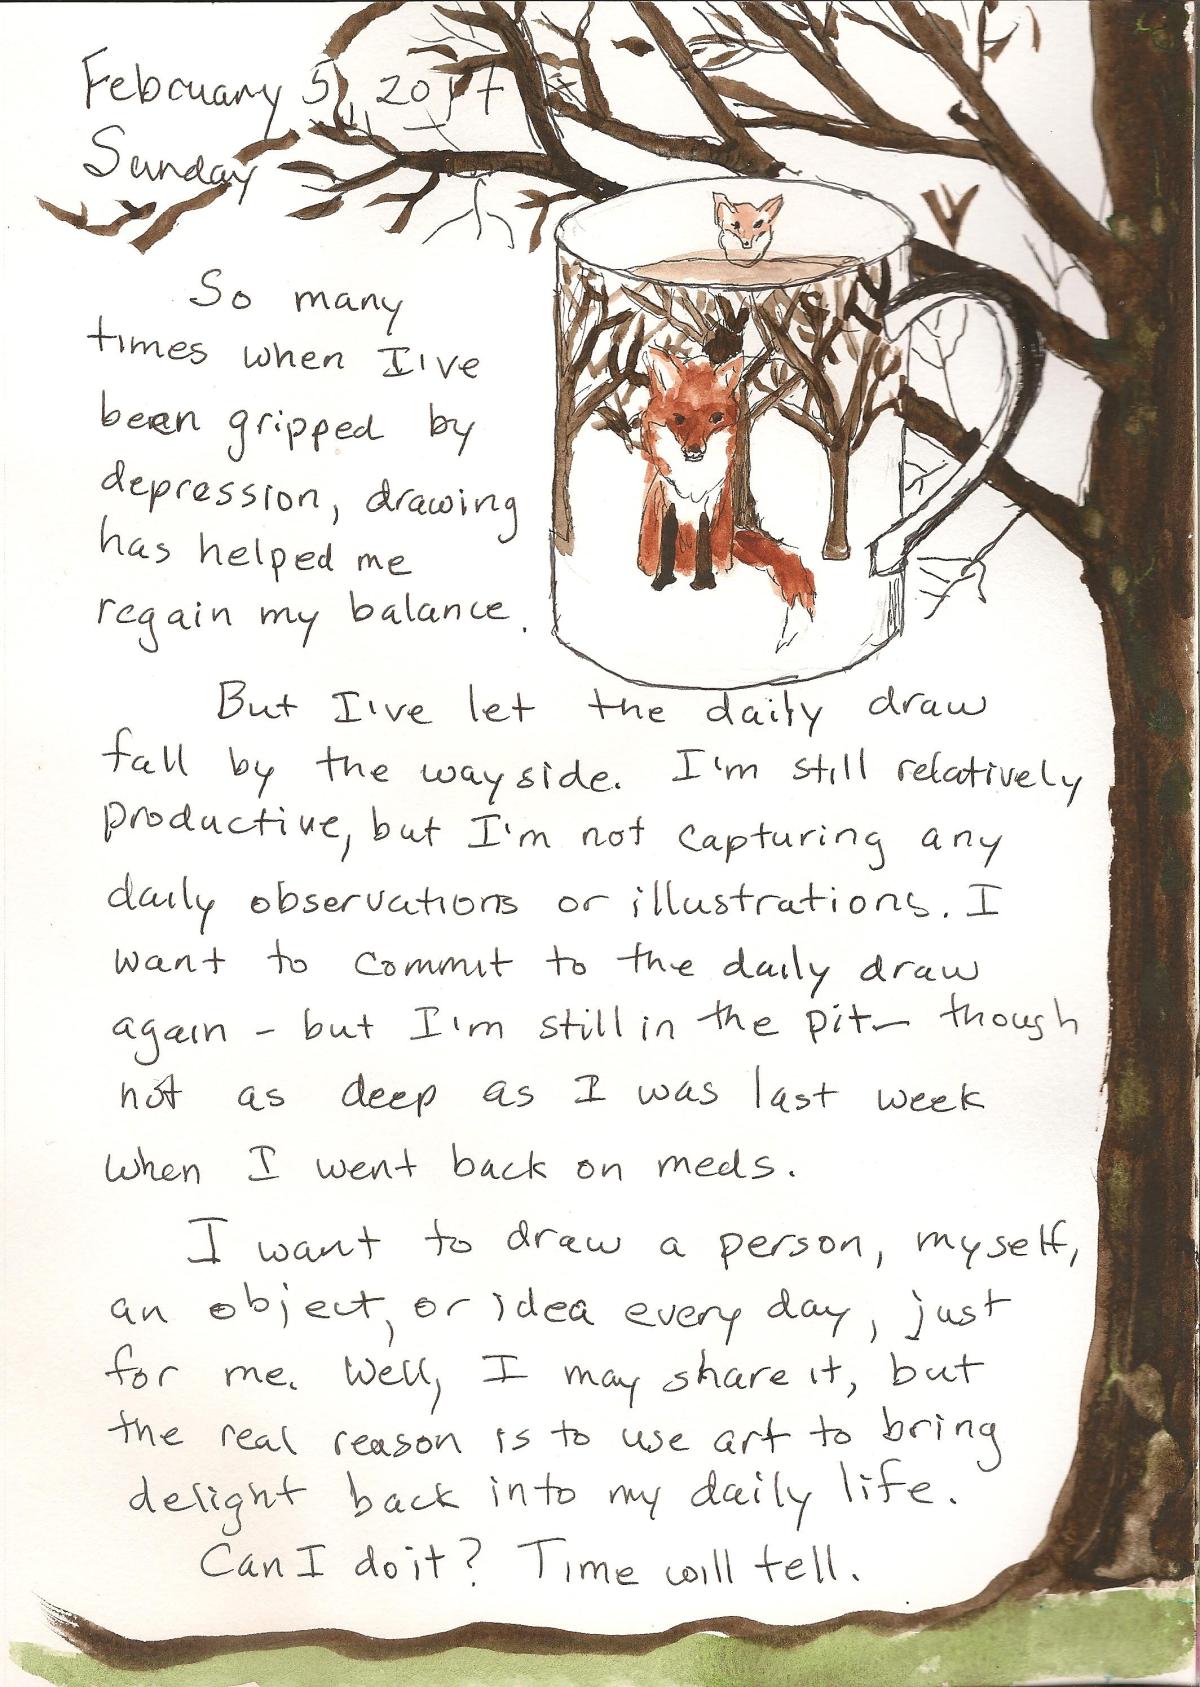 February 5, 2017
Sunday
So many
times when I've
been gripped by
depression, drawing
has helped me
regain my balance.
But I've let the daily draw
fall by the wayside. I'm still relatively
productive, but I'm not capturing any
daily observations or illustrations. I
want to commit to the daily draw
again - but I'm still in the pit - though
not as deep as I was last week
when I went back on meds.
I want to draw a person, myself,
an object, or idea every day, just
for me. Well, I may share it, but
the real reason is to use art to bring
delight back into my daily life.
Can I do it? Time will tell.